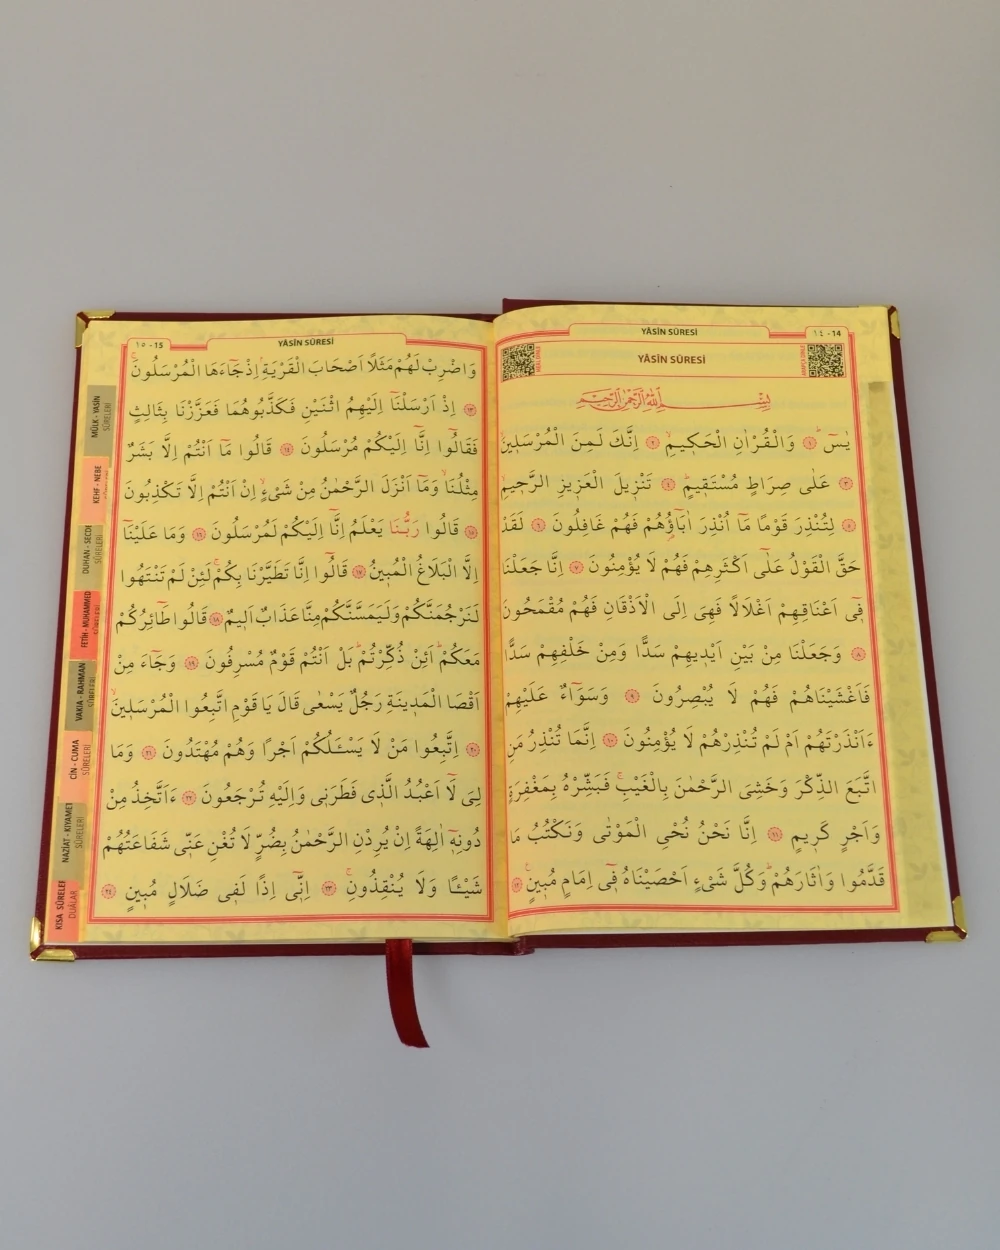 YÂSÎN SÛRESİ
١٤ - 14
YÂSÎN SÛRESİ
بِسْمِ اللّٰهِ الرَّحْمٰنِ الرَّحِيمِ
يٰسٓ ﴿١﴾ وَالْقُرْاٰنِ الْحَكِيمِ ﴿٢﴾ اِنَّكَ لَمِنَ الْمُرْسَلِينَ
﴿٣﴾ عَلٰى صِرَاطٍ مُسْتَقِيمٍ ﴿٤﴾ تَنْزِيلَ الْعَزِيزِ الرَّحِيمِ
﴿٥﴾ لِتُنْذِرَ قَوْمًا مَٓا اُنْذِرَ اٰبَٓاؤُ۬هُمْ فَهُمْ غَافِلُونَ ﴿٦﴾ لَقَدْ
حَقَّ الْقَوْلُ عَلٰٓى اَكْثَرِهِمْ فَهُمْ لَا يُؤْمِنُونَ ﴿٧﴾ اِنَّا جَعَلْنَا
فِٓى اَعْنَاقِهِمْ اَغْلَالًا فَهِىَ اِلَى الْاَذْقَانِ فَهُمْ مُقْمَحُونَ
﴿٨﴾ وَجَعَلْنَا مِنْ بَيْنِ اَيْدِيهِمْ سَدًّا وَمِنْ خَلْفِهِمْ سَدًّا
فَاَغْشَيْنَاهُمْ فَهُمْ لَا يُبْصِرُونَ ﴿٩﴾ وَسَوَٓاءٌ عَلَيْهِمْ
ءَاَنْذَرْتَهُمْ اَمْ لَمْ تُنْذِرْهُمْ لَا يُؤْمِنُونَ ﴿١٠﴾ اِنَّمَا تُنْذِرُ مَنِ
اتَّبَعَ الذِّكْرَ وَخَشِىَ الرَّحْمٰنَ بِالْغَيْبِۚ فَبَشِّرْهُ بِمَغْفِرَةٍ
وَاَجْرٍ كَرِيمٍ ﴿١١﴾ اِنَّا نَحْنُ نُحْيِى الْمَوْتٰى وَنَكْتُبُ مَا
قَدَّمُوا وَاٰثَارَهُمْۜ وَكُلَّ شَىْءٍ اَحْصَيْنَاهُ فِٓى اِمَامٍ مُبِينٍ۟ ﴿١٢﴾
YÂSÎN SÛRESİ
١٥ - 15
وَاضْرِبْ لَهُمْ مَثَلًا اَصْحَابَ الْقَرْيَةِۢ اِذْ جَٓاءَهَا الْمُرْسَلُونَۚ
﴿١٣﴾ اِذْ اَرْسَلْنَٓا اِلَيْهِمُ اثْنَيْنِ فَكَذَّبُوهُمَا فَعَزَّزْنَا بِثَالِثٍ
فَقَالُٓوا اِنَّٓا اِلَيْكُمْ مُرْسَلُونَ ﴿١٤﴾ قَالُوا مَٓا اَنْتُمْ اِلَّا بَشَرٌ
مِثْلُنَاۙ وَمَٓا اَنْزَلَ الرَّحْمٰنُ مِنْ شَىْءٍۙ اِنْ اَنْتُمْ اِلَّا تَكْذِبُونَ
﴿١٥﴾ قَالُوا رَبُّنَا يَعْلَمُ اِنَّٓا اِلَيْكُمْ لَمُرْسَلُونَ ﴿١٦﴾ وَمَا عَلَيْنَٓا
اِلَّا الْبَلَاغُ الْمُبِينُ ﴿١٧﴾ قَالُٓوا اِنَّا تَطَيَّرْنَا بِكُمْۚ لَئِنْ لَمْ تَنْتَهُوا
لَنَرْجُمَنَّكُمْ وَلَيَمَسَّنَّكُمْ مِنَّا عَذَابٌ اَلِيمٌ ﴿١٨﴾ قَالُوا طَٓائِرُكُمْ
مَعَكُمْۜ اَئِنْ ذُكِّرْتُمْۜ بَلْ اَنْتُمْ قَوْمٌ مُسْرِفُونَ ﴿١٩﴾ وَجَٓاءَ مِنْ
اَقْصَا الْمَدِينَةِ رَجُلٌ يَسْعٰى قَالَ يَا قَوْمِ اتَّبِعُوا الْمُرْسَلِينَۙ
﴿٢٠﴾ اِتَّبِعُوا مَنْ لَا يَسْـَٔلُكُمْ اَجْرًا وَهُمْ مُهْتَدُونَ ﴿٢١﴾ وَمَا
لِىَ لَٓا اَعْبُدُ الَّذِى فَطَرَنِى وَاِلَيْهِ تُرْجَعُونَ ﴿٢٢﴾ ءَاَتَّخِذُ مِنْ
دُونِهِٓ اٰلِهَةً اِنْ يُرِدْنِ الرَّحْمٰنُ بِضُرٍّ لَا تُغْنِ عَنِّى شَفَاعَتُهُمْ
شَيْـًٔا وَلَا يُنْقِذُونِۚ ﴿٢٣﴾ اِنِّٓى اِذًا لَفِى ضَلَالٍ مُبِينٍ ﴿٢٤﴾
MÜLK - YASİN
SÛRELERİ
KEHF - NEBE
DUHAN - SECDE
SÛRELERİ
FETİH - MUHAMMED
SÛRELERİ
VAKIA - RAHMAN
SÛRELERİ
CİN - CUMA
SÛRELERİ
NAZİAT - KIYAMET
SÛRELERİ
KISA SÛRELER
DUALAR